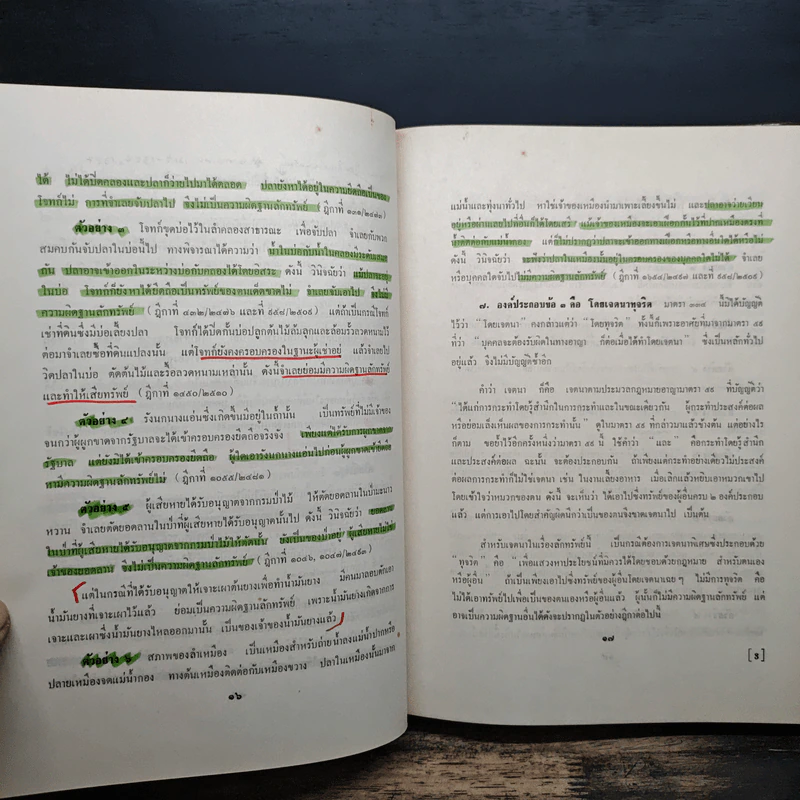 ได้ ไม่ได้ปิดคลองและปลาก็ว่ายไปมาได้ตลอด ปลายังหาได้อยู่ในความยึดถือเป็นของ
โจทก์ไม่ การที่จำเลยจับปลาไป จึงไม่เป็นความผิดฐานลักทรัพย์ (ฎีกาที่
ตัวอย่าง ๓ โจทก์ขุดบ่อไว้ในลำคลองสาธารณะ เพื่อจับปลา จำเลยกับพวก
สมคบกันจับปลาในบ่อนี้ไป ทางพิจารณาได้ความว่า น้ำในบ่อกับน้ำในคลองมีระดับเสมอ
กัน ปลาอาจเข้าออกในระหว่างบ่อกับคลองได้โดยอิสระ ดังนี้ วินิจฉัยว่า แม้ปลาจะอยู่
ในบ่อ โจทก์ก็ยังหาได้ยึดถือเป็นทรัพย์ของตนเด็ดขาดไม่ จำเลยจับเอาไป จึงไม่มี
ความผิดฐานลักทรัพย์ (ฎีกาที่ ๔๓๒/๒๔๗๖ และที่ ๙๕๗/๒๕๐๕) แต่ถ้าเป็นกรณีโจทก์
เช่าที่ดินซึ่งมีบ่อเลี้ยงปลา โจทก์ได้ปิดกั้นบ่อปลูกต้นไม้ล้มลุกและล้อมรั้วลวดหนามไว้
ต่อมาจำเลยซื้อที่ดินแปลงนั้น แต่โจทก์ยังคงครอบครองในฐานะผู้เช่าอยู่ แล้วจำเลยไป
วิดปลาในบ่อ ตัดต้นไม้ และรื้อลวดหนามเหล่านั้น ดังนี้จำเลยย่อมมีความผิดฐานลักทรัพย์
และทำให้เสียทรัพย์ (ฎีกาที่ ๑๔๕๐/๒๕๑๐)
ตัวอย่าง ๔ รังนกนางแอ่นซึ่งเกิดขึ้นมีอยู่ในถ้ำนั้น เป็นทรัพย์ที่ไม่มีเจ้าของ
จนกว่าผู้ผูกขาดจากรัฐบาลจะได้เข้าครอบครองยึดถือจริงจัง เพียงแต่ได้รับการผูกขาดจาก
รัฐบาล แต่ยังมิได้เข้าครอบครองยึดถือ ผู้ใดเอารังนกนางแอ่นไปก่อนผู้ผูกขาดเข้ายึดถือ
หามีความผิดฐานลักทรัพย์ไม่ (ฎีกาที่ ๑๐๕๕/๒๔๘๑)
ตัวอย่าง ๕ ผู้เสียหายได้รับอนุญาตจากกรมป่าไม้ ให้ตัดยอดลานในป่ามะนาว
หวาน จำเลยตัดยอดลานในป่าที่ผู้เสียหายได้รับอนุญาตนั้นไป ดังนี้ วินิจฉัยว่า ยอดลาน
ในป่าที่ผู้เสียหายได้รับอนุญาตจากกรมป่าไม้ให้ตัดนั้น ยังเป็นของป่าอยู่ ผู้เสียหายไม่ใช่
เจ้าของยอดลาน จึงไม่เป็นความผิดฐานลักทรัพย์ (ฎีกาที่ ๑๐๔๖, ๑๐๔๗/๒๔๙๓)
แต่ในกรณีที่ได้รับอนุญาตให้เจาะเผาต้นยางเพื่อทำน้ำมันยาง มีคนมาลอบตักเอา
น้ำมันยางที่เจาะเผาไว้แล้ว ย่อมเป็นความผิดฐานลักทรัพย์ เพราะน้ำมันยางเกิดจากการ
เจาะและเผาซึ่งน้ำมันยางไหลออกมานั้น เป็นของเจ้าของน้ำมันยางแล้ว
ตัวอย่าง ๖ สภาพของลำเหมือง เป็นเหมืองสำหรับถ่ายน้ำลงแม่น้ำปากหรือ
ปลายเหมืองจดแม่น้ำกอง ทางต้นเหมืองติดต่อกับเหมืองขวาง ปลาในเหมืองนั้นมาจาก
๑๖
แม่น้ำและทุ่งนาทั่วไป หาใช่เจ้าของเหมืองนำมาเพาะเลี้ยงขึ้นไม่ และปลาอาจว่ายเวียน
อยู่หรือผ่านเลยไปที่อื่นก็ได้โดยเสรี แม้เจ้าของเหมืองจะเอาเฝือกกั้นไว้ที่ปากเหมืองตรงที่
น้ำติดต่อกับแม่น้ำกอง แต่ก็ไม่ปรากฏว่าปลาจะเข้าออกทางเฝือกหรือทางอื่นใดได้หรือไม่
ดังนี้ วินิจฉัยว่า จะฟังว่าปลาในเหมืองนั้นอยู่ในครอบครองของบุคคลใดไม่ได้ จำเลย
หรือบุคคลใดจับไปไม่มีความผิดฐานลักทรัพย์ (ฎีกาที่ ๑๖๕๔/๒๔๙๗ และที่ ๙๕๗/๒๕๐๕)
๗. องค์ประกอบข้อ ๓ คือ โดยเจตนาทุจริต มาตรา ๓๓๔ นี้มิได้บัญญัติ
ไว้ว่า “โดยเจตนา” คงกล่าวแต่ว่า “โดยทุจริต” ทั้งนี้ก็เพราะอาศัยที่มาจากมาตรา ๕๙
ที่ว่า “บุคคลจะต้องรับผิดในทางอาญา ก็ต่อเมื่อได้ทำโดยเจตนา” ซึ่งเป็นหลักทั่วไป
อยู่แล้ว จึงไม่มีบัญญัติซ้ำอีก
คำว่า เจตนา ก็คือ เจตนาตามประมวลกฎหมายอาญามาตรา ๕๙ ที่บัญญัติว่า
“ได้แก่การกระทำโดยรู้สำนึกในการกระทำและในขณะเดียวกัน ผู้กระทำประสงค์ต่อผล
หรือย่อมเล็งเห็นผลของการกระทำนั้น” ดูในมาตรา ๕๙ ที่กล่าวมาแล้วข้างต้น แต่อย่างไร
ก็ตาม ขอย้ำไว้อีกครั้งหนึ่งว่ามาตรา ๕๙ นี้ ใช้คำว่า “และ” คือกระทำโดยรู้สำนึก
และประสงค์ต่อผล ฉะนั้น จะต้องประกอบกัน ถ้าเพียงแต่กระทำอย่างเดียวไม่ประสงค์
ต่อผลการกระทำก็ไม่ใช่เจตนา เช่น ในงานเลี้ยงอาหาร เมื่อเลิกแล้วหยิบเอาหมวกเขาไป
โดยเข้าใจว่าหมวกของตน ดังนี้ จะเห็นว่า ได้เอาไปซึ่งทรัพย์ของผู้อื่นครบ ๒ องค์ประกอบ
แล้ว แต่การเอาไปโดยสำคัญผิดนึกว่าเป็นของตนจึงขาดเจตนาไป เป็นต้น
สำหรับเจตนาในเรื่องลักทรัพย์นี้ เป็นกรณีต้องการเจตนาพิเศษซึ่งประกอบด้วย
“ทุจริต” คือ “เพื่อแสวงหาประโยชน์ที่มิควรได้โดยชอบด้วยกฎหมาย สำหรับตนเอง
หรือผู้อื่น” ถ้าเป็นเพียงเอาไปซึ่งทรัพย์ของผู้อื่นโดยเจตนาเฉย ๆ ไม่มีการทุจริต คือ
ไม่ได้เอาทรัพย์ไปเพื่อเป็นของตนเองหรือผู้อื่นแล้ว ผู้นั้นก็ไม่มีความผิดฐานลักทรัพย์ แต่
อาจเป็นความผิดฐานอื่นได้ดังจะปรากฏในตัวอย่างฎีกาต่อไปนี้
๑๗
[3]